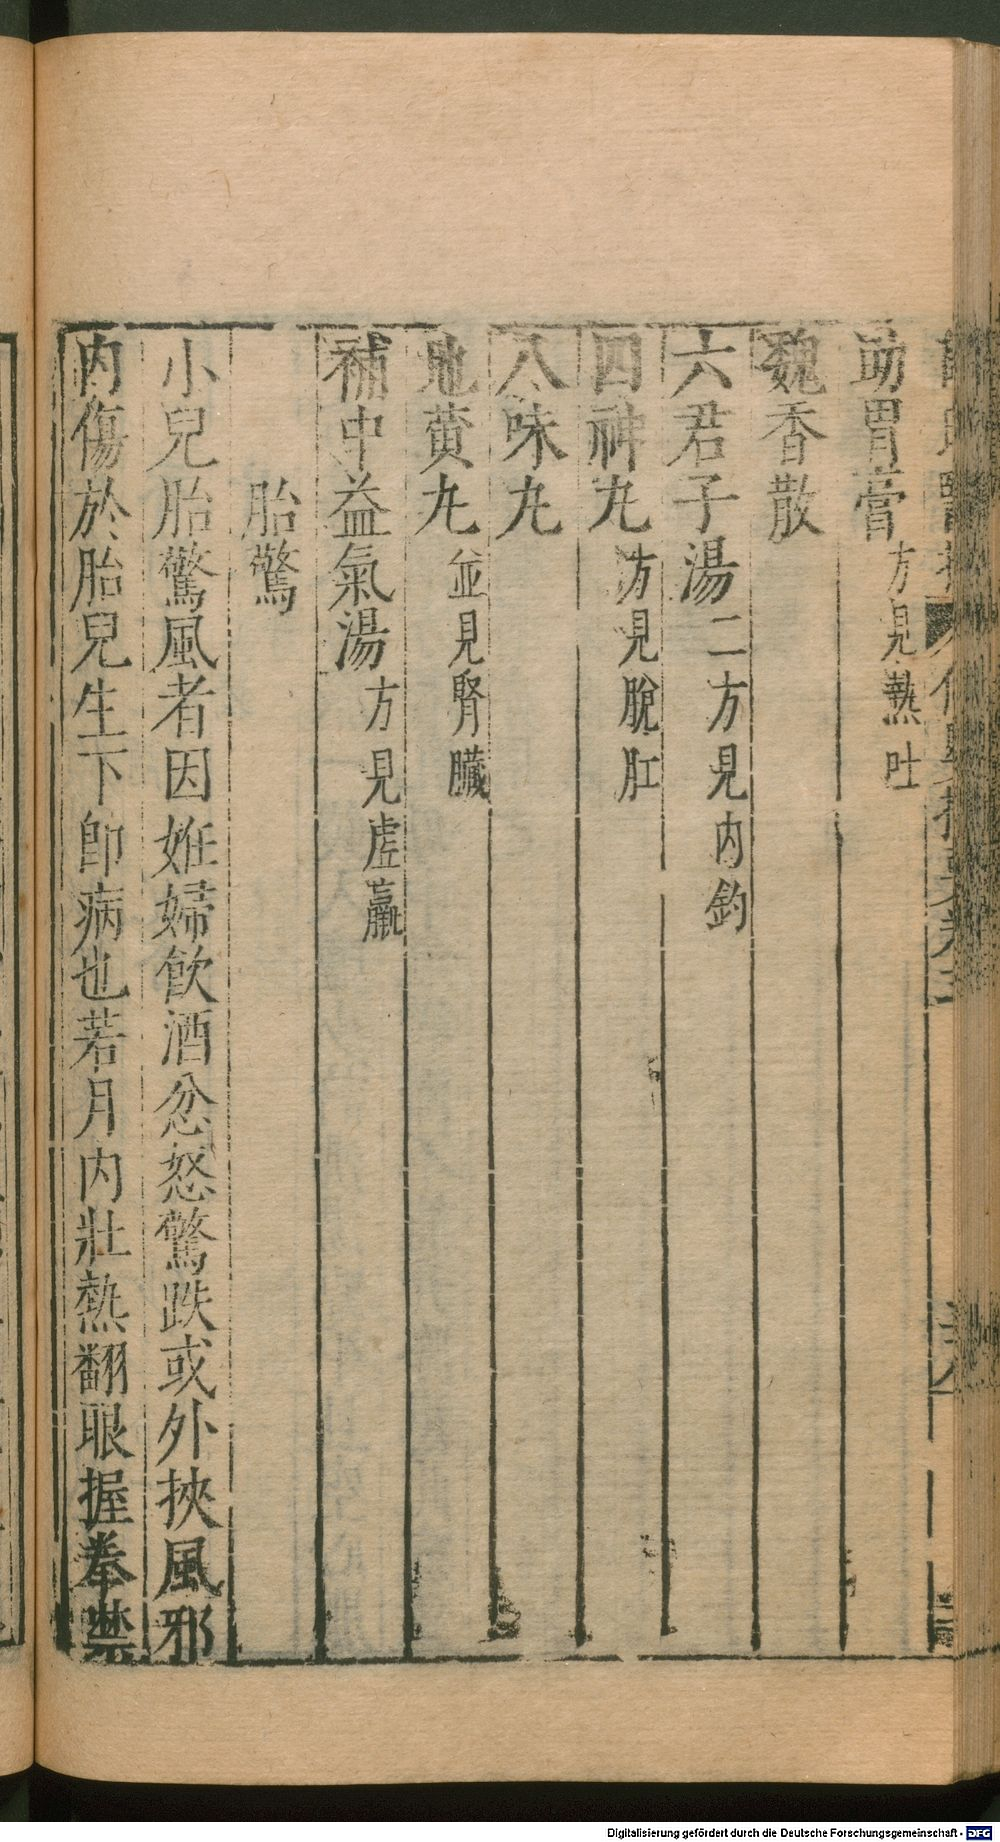 助胃膏方見熱吐
魏香散
六君子湯二方見内釣
四神九方見脫肛
八味九
地黄九並見腎臟
補中益氣湯方見虛羸
胎驚
小兒胎驚風者因姙婦飲酒忿怒驚跌或外挾風邪
内傷於胎兒生下即病也若月内壯熱翻眼握拳禁
Digitalisierung gefördert durch die Deutsche Forschungsgemeinschaft - DFG